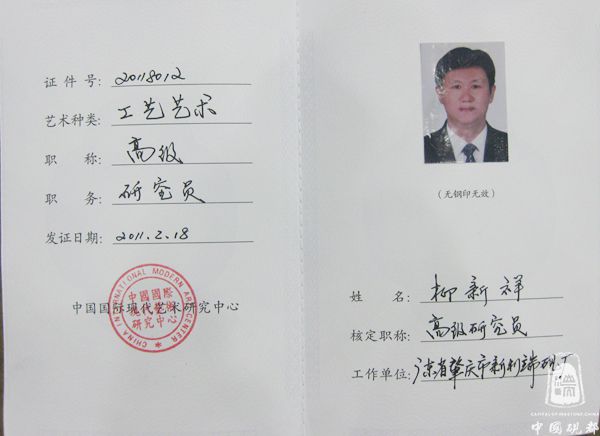 证件号: 2018012
艺术种类: 工艺艺术
职 称: 高级
职 务: 研究员
发证日期: 2011.2.18
中国国际现代艺术研究中心
CHINA INTERNATIONAL MODERN ART CENTER
中國國際
現代藝術
研究中心
(无钢印无效)
姓 名: 柳新祥
核定职称: 高级研究员
工作单位: 广东省肇庆市新利端砚厂
中國硯都